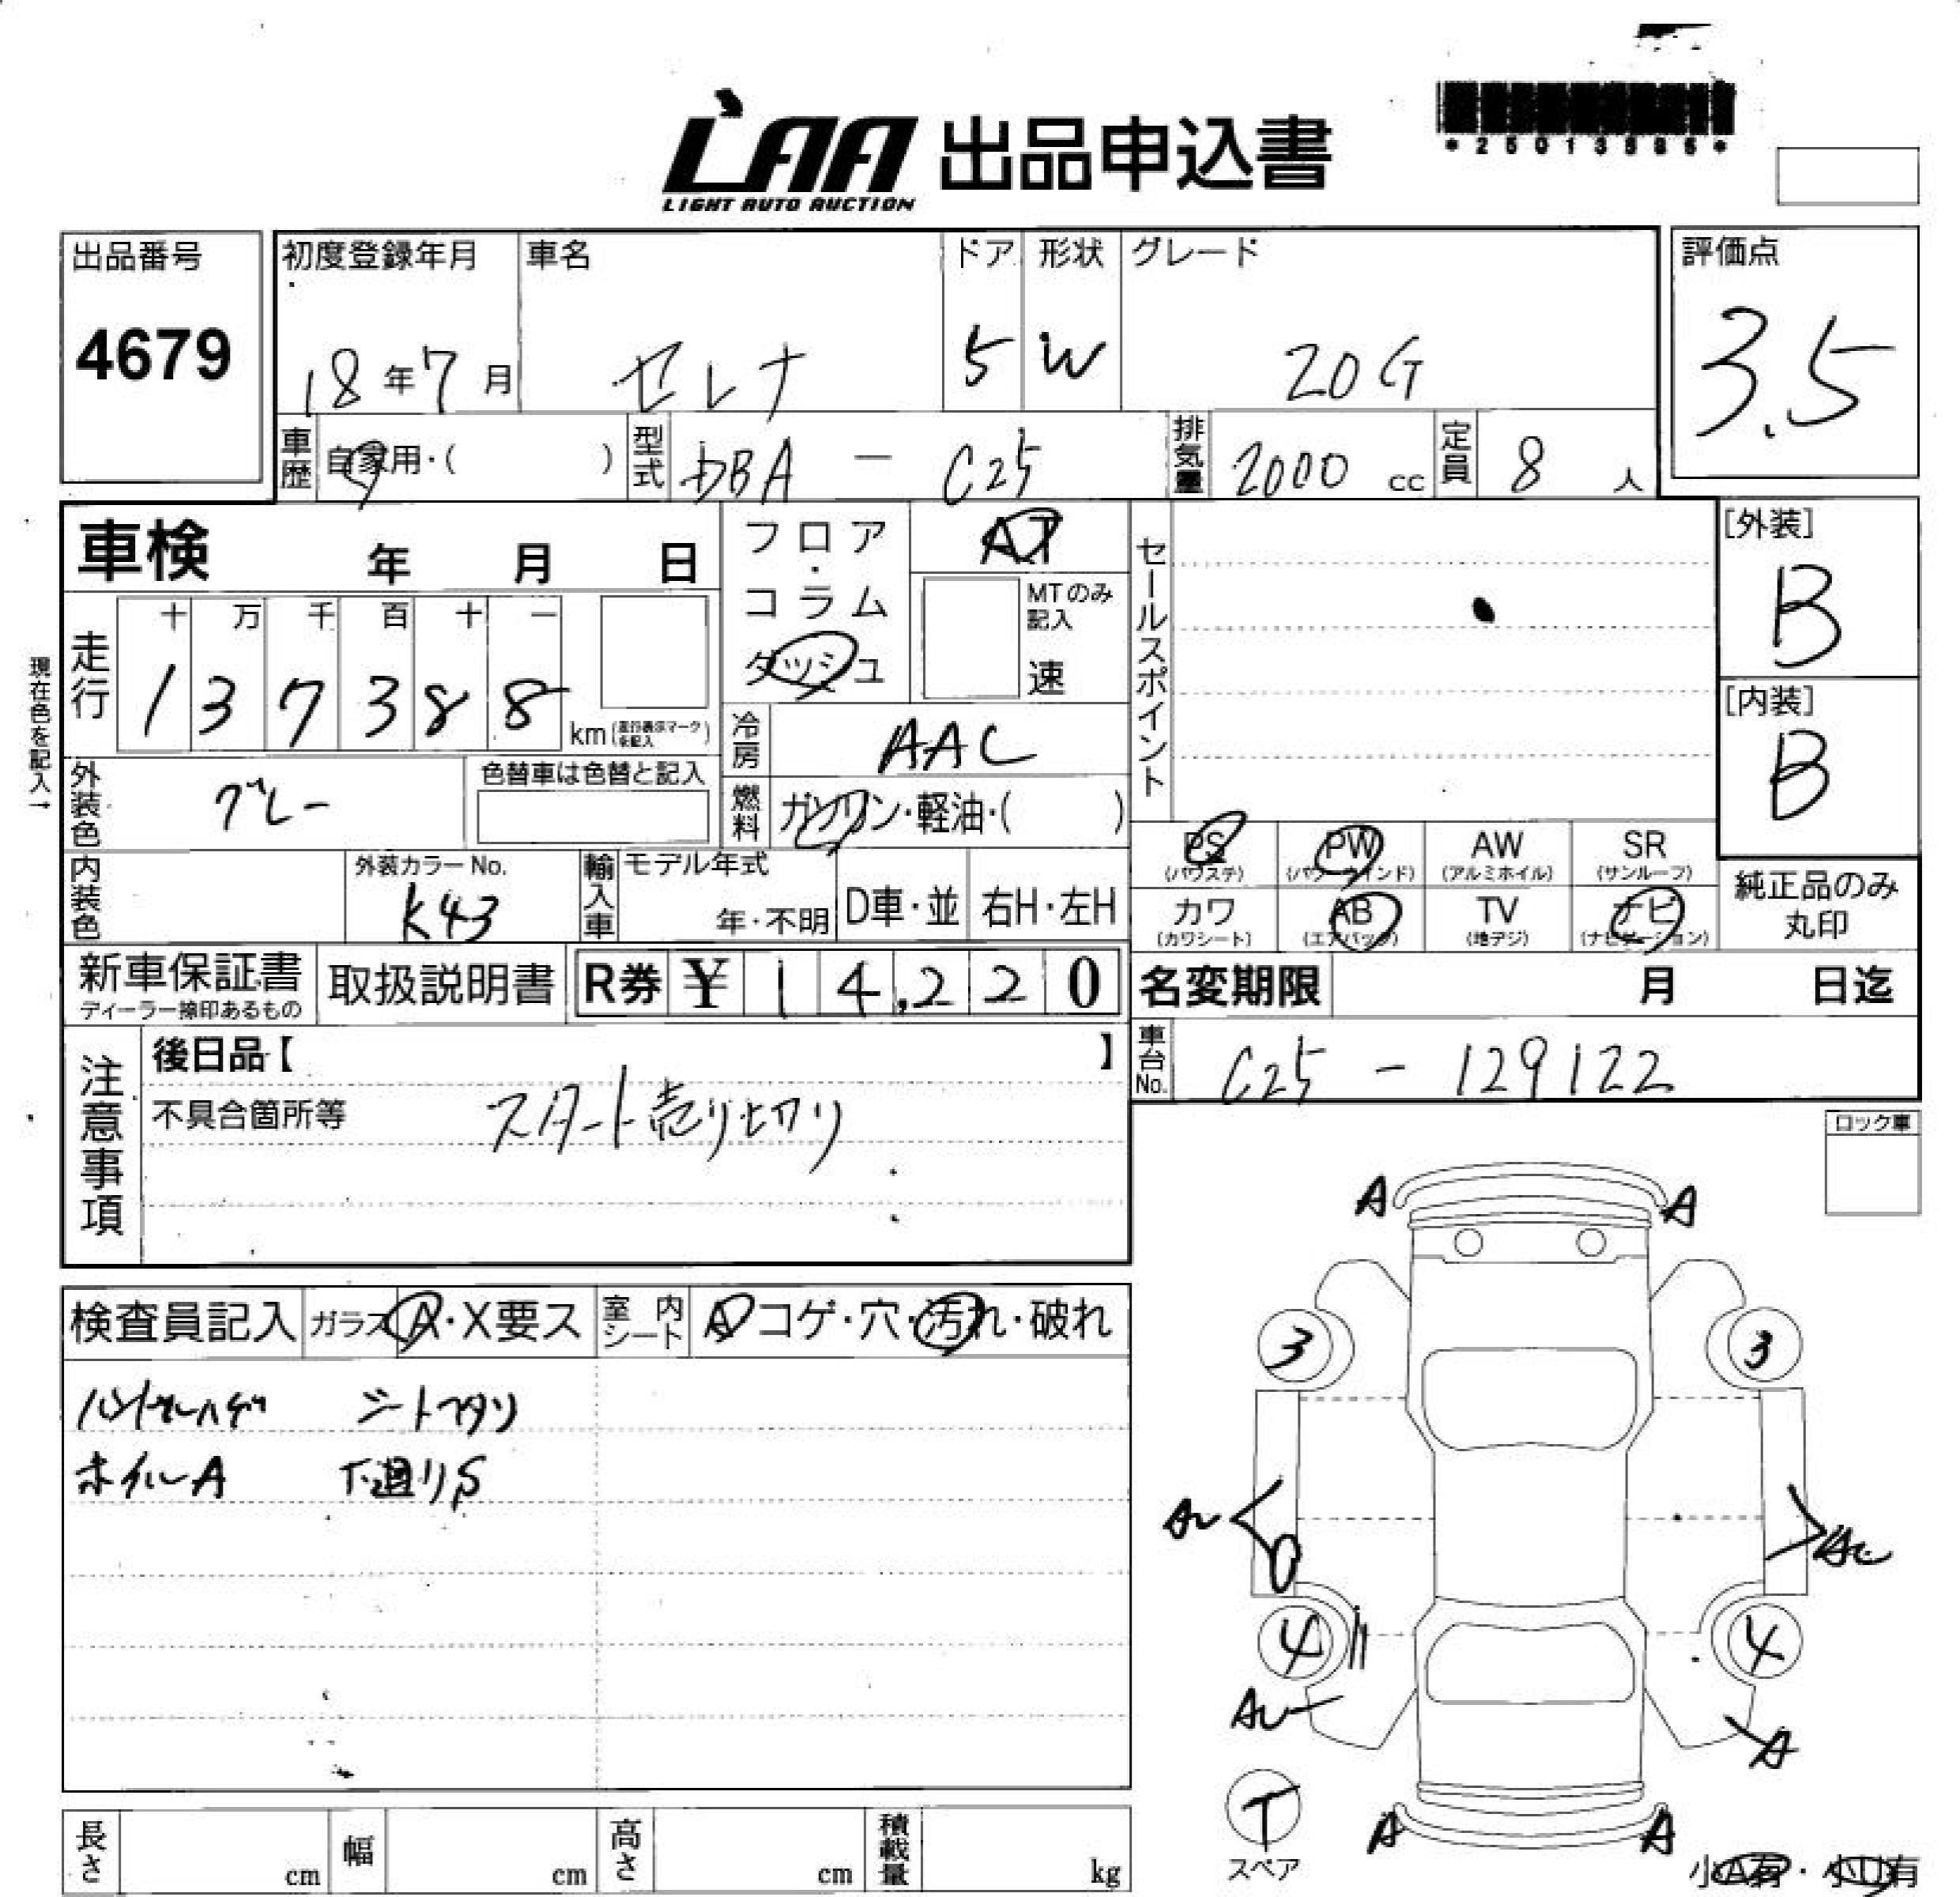 LAA 出品申込書
LIGHT AUTO AUCTION
出品番号
4679
初度登録年月
18年7月
車名
セレナ
ドア
5
形状
W
グレード
20G
評価点
3.5
車歴 自家用・( )
型式 DBA - C25
排気量 2000 cc
定員 8 人
車検 年 月 日
フロア・コラム
ダッシュ
AT
MTのみ記入
速
セールスポイント
[外装]
B
[内装]
B
現在色を記入→
走行
十 万 千 百 十 一
1 3 7 3 8 8
km(走行表示マークを記入)
冷房 AAC
外装色 グレー
色替車は色替と記入
燃料 ガソリン・軽油・( )
PS (パワステ)
PW (パワーウインド)
AW (アルミホイル)
SR (サンルーフ)
カワ (カワシート)
AB (エアバック)
TV (地デジ)
ナビ (ナビゲーション)
純正品のみ
丸印
内装色
外装カラーNo.
K43
輸入車
モデル年式
年・不明
D車・並
右H・左H
新車保証書
ディーラー捺印あるもの
取扱説明書
R券 ¥ 14,220
名変期限 月 日迄
車台No. C25 - 129122
注意事項
後日品【 】
不具合箇所等
スタート売り切り
ロック車
検査員記入
ガラス A・X要ス
室内シート A コゲ・穴・汚れ・破れ
ハンドルハゲ シートヘタリ
ホイルA 下廻りS
A A
3 3
AU
4 4
AU
A
T
スペア
A A
小A有・小U有
長さ cm
幅 cm
高さ cm
積載量 kg